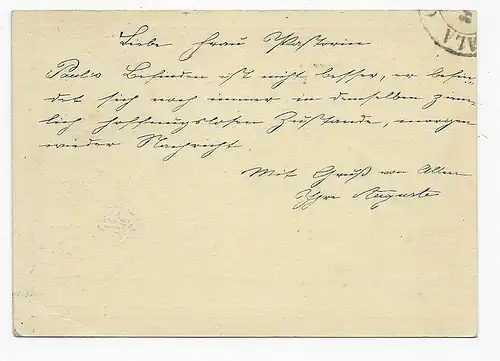 Liebe Frau Pastorin
Pauls Befinden ist nicht besser, er befin-
det sich noch immer in demselben ziem-
lich hoffnungslosen Zustande, morgen
wieder Nachricht.
Mit Gruß von Allen
Ihre Auguste
ALA